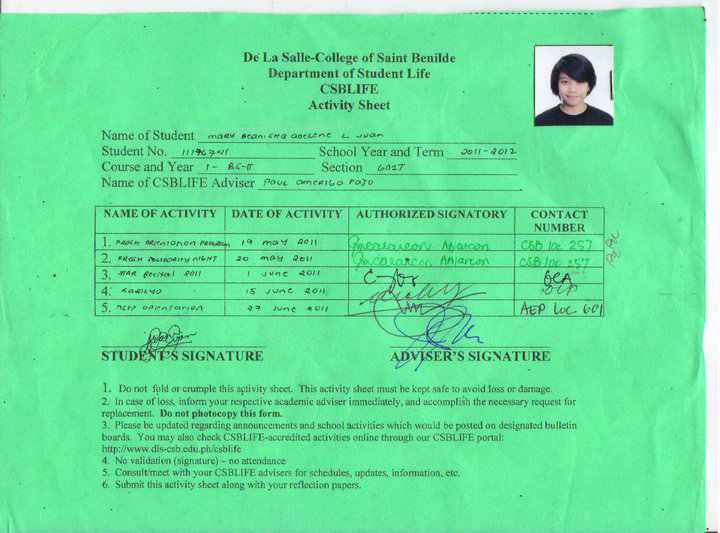 De La Salle-College of Saint Benilde
Department of Student Life
CSBLIFE
Activity Sheet
Name of Student Mary L Juan
Student No. School Year and Term 2011-2012
Course and Year 1 - Section
Name of CSBLIFE Adviser Paul Amerigo Pajo
NAME OF ACTIVITY DATE OF ACTIVITY AUTHORIZED SIGNATORY CONTACT NUMBER
1. Frosh Orientation Program 19 May 2011 CSB loc 257
2. Frosh Night 20 May 2011 CSB loc 257
3. Recital 2011 1 June 2011 OCA
4. 15 June 2011
5. Orientation 27 June 2011 AEP Loc 601
STUDENT'S SIGNATURE ADVISER'S SIGNATURE
1. Do not fold or crumple this activity sheet. This activity sheet must be kept safe to avoid loss or damage.
2. In case of loss, inform your respective academic adviser immediately, and accomplish the necessary request for
replacement. Do not photocopy this form.
3. Please be updated regarding announcements and school activities which would be posted on designated bulletin
boards. You may also check CSBLIFE-accredited activities online through our CSBLIFE portal:
http://www.dls-csb.edu.ph/csblife
4. No validation (signature) – no attendance
5. Consult/meet with your CSBLIFE advisers for schedules, updates, information, etc.
6. Submit this activity sheet along with your reflection papers.